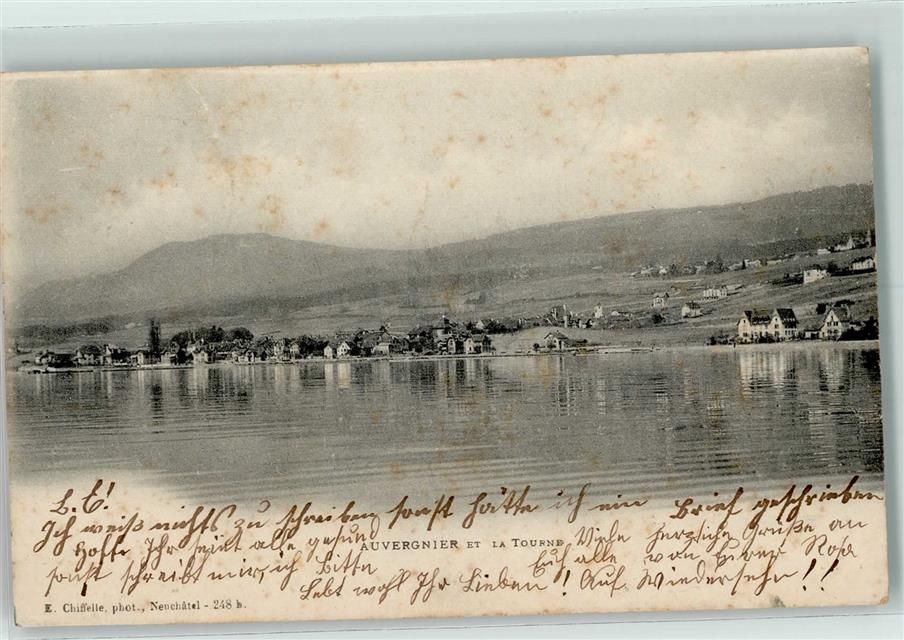 L. E!
Ich weiß nichts zu schreiben sonst hätte ich ein Brief geschrieben
Hoffe Ihr seit alle gesund
AUVERGNIER ET LA TOURNE
Viele herzliche Grüße an
sonst schreibt mir, ich bitte
Euch alle von Eurer Rosa
Lebt wohl Ihr Lieben! Auf Wiedersehn!!!
E. Chiffelle, phot., Neuchâtel - 248 b.